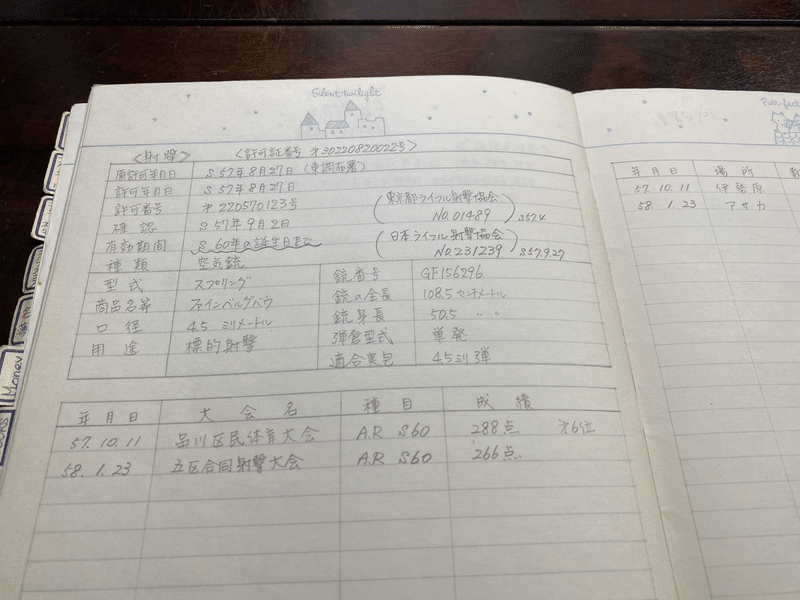 Silent twilight
<射撃> <許可証番号 第302208200225号>
原許可年月日 S57年8月27日(東調布署)
許可年月日 S57年8月27日
許可番号 第220570123号
確認 S57年9月2日
有効期間 S60年の誕生日まで
(東京都ライフル射撃協会 No.01489) S57.4
(日本ライフル射撃協会 No.231239) S57.9.27
種類 空気銃
型式 スプリング
商品名等 ファインベルグバウ
口径 4.5ミリメートル
用途 標的射撃
銃番号 GF156296
銃の全長 108.5センチメートル
銃身長 50.5 〃 〃
弾倉型式 単発
適合実包 4.5ミリ弾
年月日 大会名 種目 成績
57.10.11 品川区民体育大会 A.R S60 288点 第6位
58.1.23 五区合同射撃大会 A.R S60 266点
Money
年月日 場所
57.10.11 伊勢原
58.1.23 アサカ